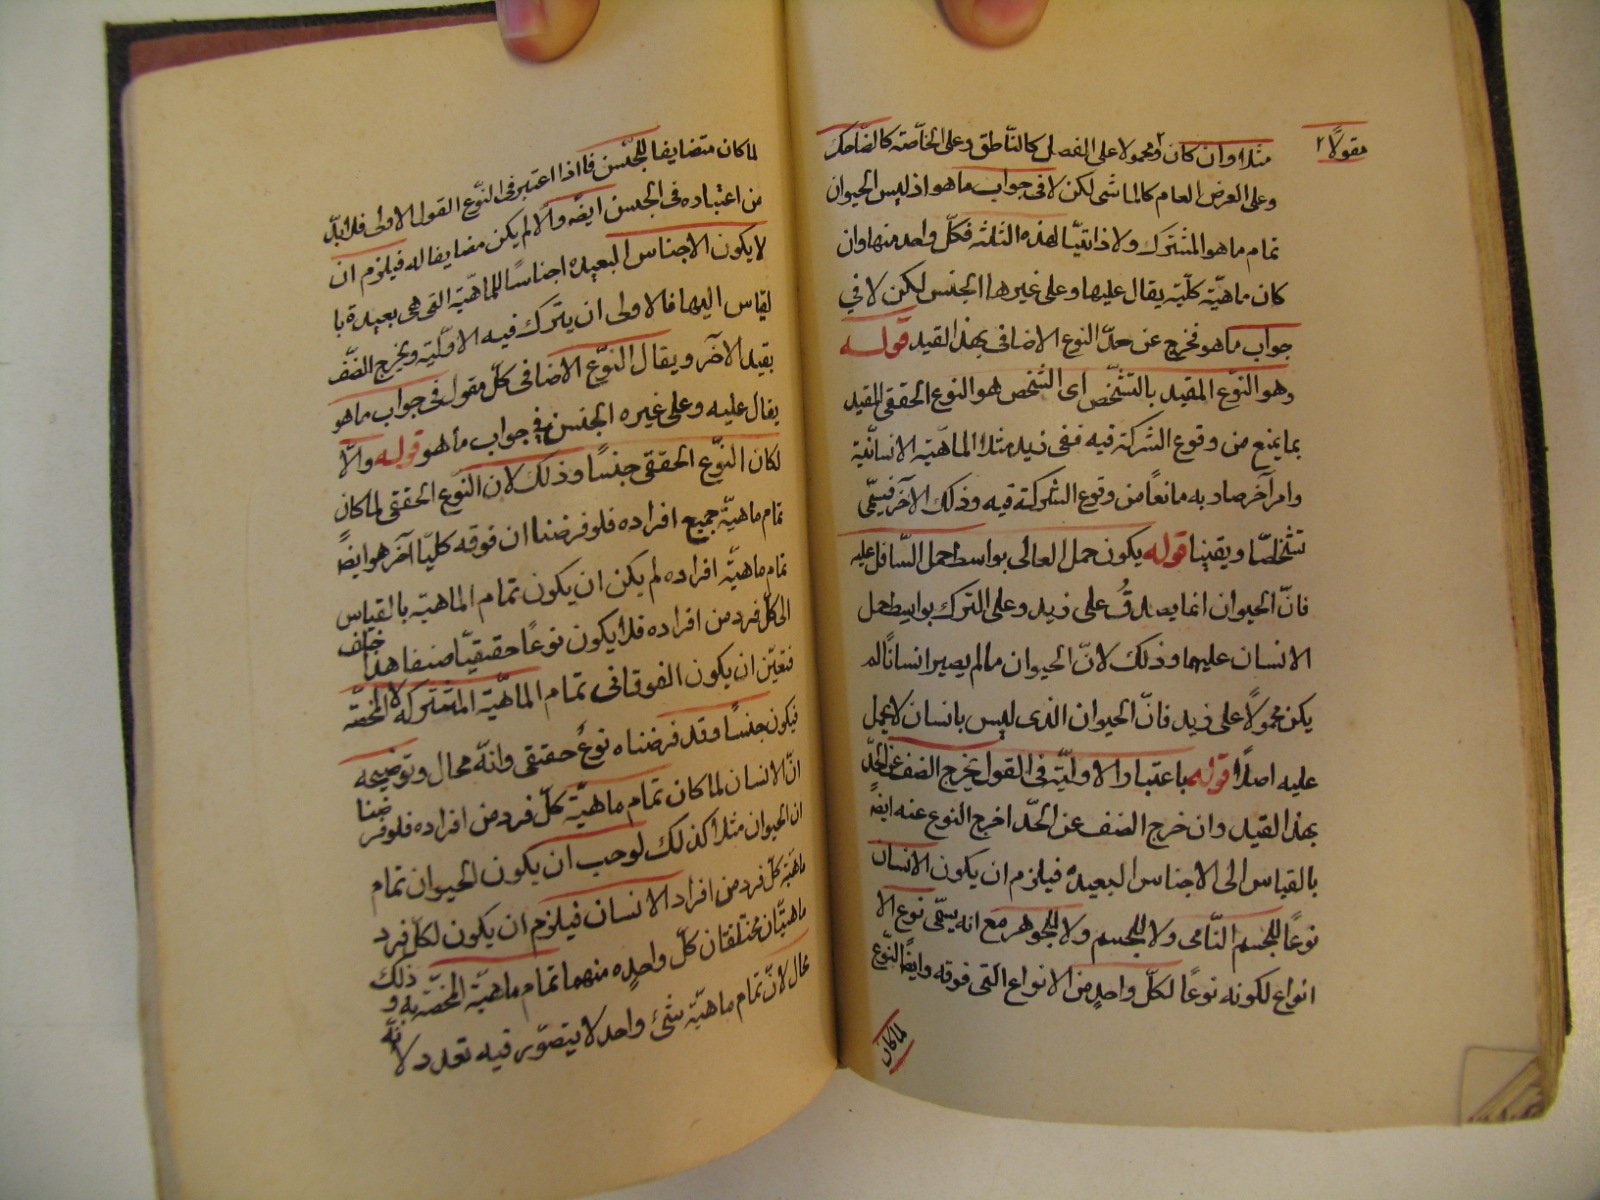 مقولاً ٢
مثلا وان كان ٢ ومحمولا على الفصل كالنّاطق وعلى الخاصّة كالضّاحك
وعلى العرض العام كالماشى لكن لا فى جواب ما هو اذ ليس الحيوان
تمام ما هو المشترك ولا ذاتيّا لهذه الثلثة فكلّ واحد منها وان
كان ماهيّة كليّة يقال عليها وعلى غيرها الجنس لكن لا في
جواب ما هو فخرج عن حدّ النوع الاضافى بهذا القيد قوله
وهو النوّع المقيد بالتشّخص اى الشخص هو النوع الحقيقى المقيد
بما يمنع من وقوع الشركة فيه ففى زيد مثلا الماهيّة الانسانيّة
وامر آخر صار به مانعاً من وقوع الشركة فيه وذلك الآخر فيسمّى
تشخّصّا ويقينا قوله يكون حمل العالى بواسط حمل السّافل عليه
فانّ الحيوان انما يصدقُ على زيد وعلى الترك بواسط حمل
الانسان عليهما وذلك لانّ الحيوان ما لم يصير انسانًا لم
يكن محمولاً على زيد فانّ الحيوان الذى ليس بانسان لا يحمل
عليه اصلًا قوله باعتبار الاوليّة فى القول يخرج الصنف عن الحدّ
بهذا القيد وان خرج الصنف عن الحدّ اخرج النوع عنه ايضً
بالقياس الى الاجناس البعيدة فيلزم ان يكون الانسان
نوعًا للجسم النّامى ولا للجسم ولا للجوهر مع انه يسمّى نوع الا
انواع لكونه نوعًا لكلّ واحدٍ من الانواع التى فوقه وايضًا النّوع
لما كان
لما كان متضايفا للجنّس فاذا اعتبر فى النّوع القول الاولى فلا بّد
من اعتباره فى الجنس ايضًه والّا لم يكن مضايفا له فيلزم ان
لا يكون الاجناس البعيدة اجناسًا للماهيّة التى هى بعيدة با
لقياس اليها فالاولى ان يترك فيه الاوّليّة ويخرج الصّنف
بقيد الآخر ويقال النوّع الاضافى كلّ مقول فى جواب ما هو
يقال عليه وعلى غيره الجنس فى جواب ما هو قوله والّا
لكان النّوع الحقيقى جنسًا وذلك لان النوّع الحقيقى لما كان
تمام ماهيّة جميع افراده فلو فرضنا ان فوقه كليّا آخر هو ايضًا
تمام ماهيّة افراده لم يكن ان يكون تمام الماهيّة بالقياس
الى كلّ فرد من افراده فلا يكون نوعًا حقيقيّا صنفا هذا خلف
فتعيّن ان يكون الفوقانى تمام الماهيّة المشتركه لا المختصّه
فيكون جنسًا وقد فرضناه نوعٌ حقيقى وانّه محال وتوضيحه
انّ الانسان لما كان تمام ماهيّة كلّ فرد من افراده فلو فرضنا
ان الحيوان مثلا كذلك لوجب ان يكون الحيوان تمام
ماهيّة كلّ فرد من افراد الانسان فيلزم ان يكون لكلّ فرد
ماهيتّان مختلفتان كلّ واحدٍه منهما تمام ماهيّة المختصّة به و ذلك
محال لانّ تمام ماهيّة شئ واحد لا يتصوّر فيه تعدد لانّه